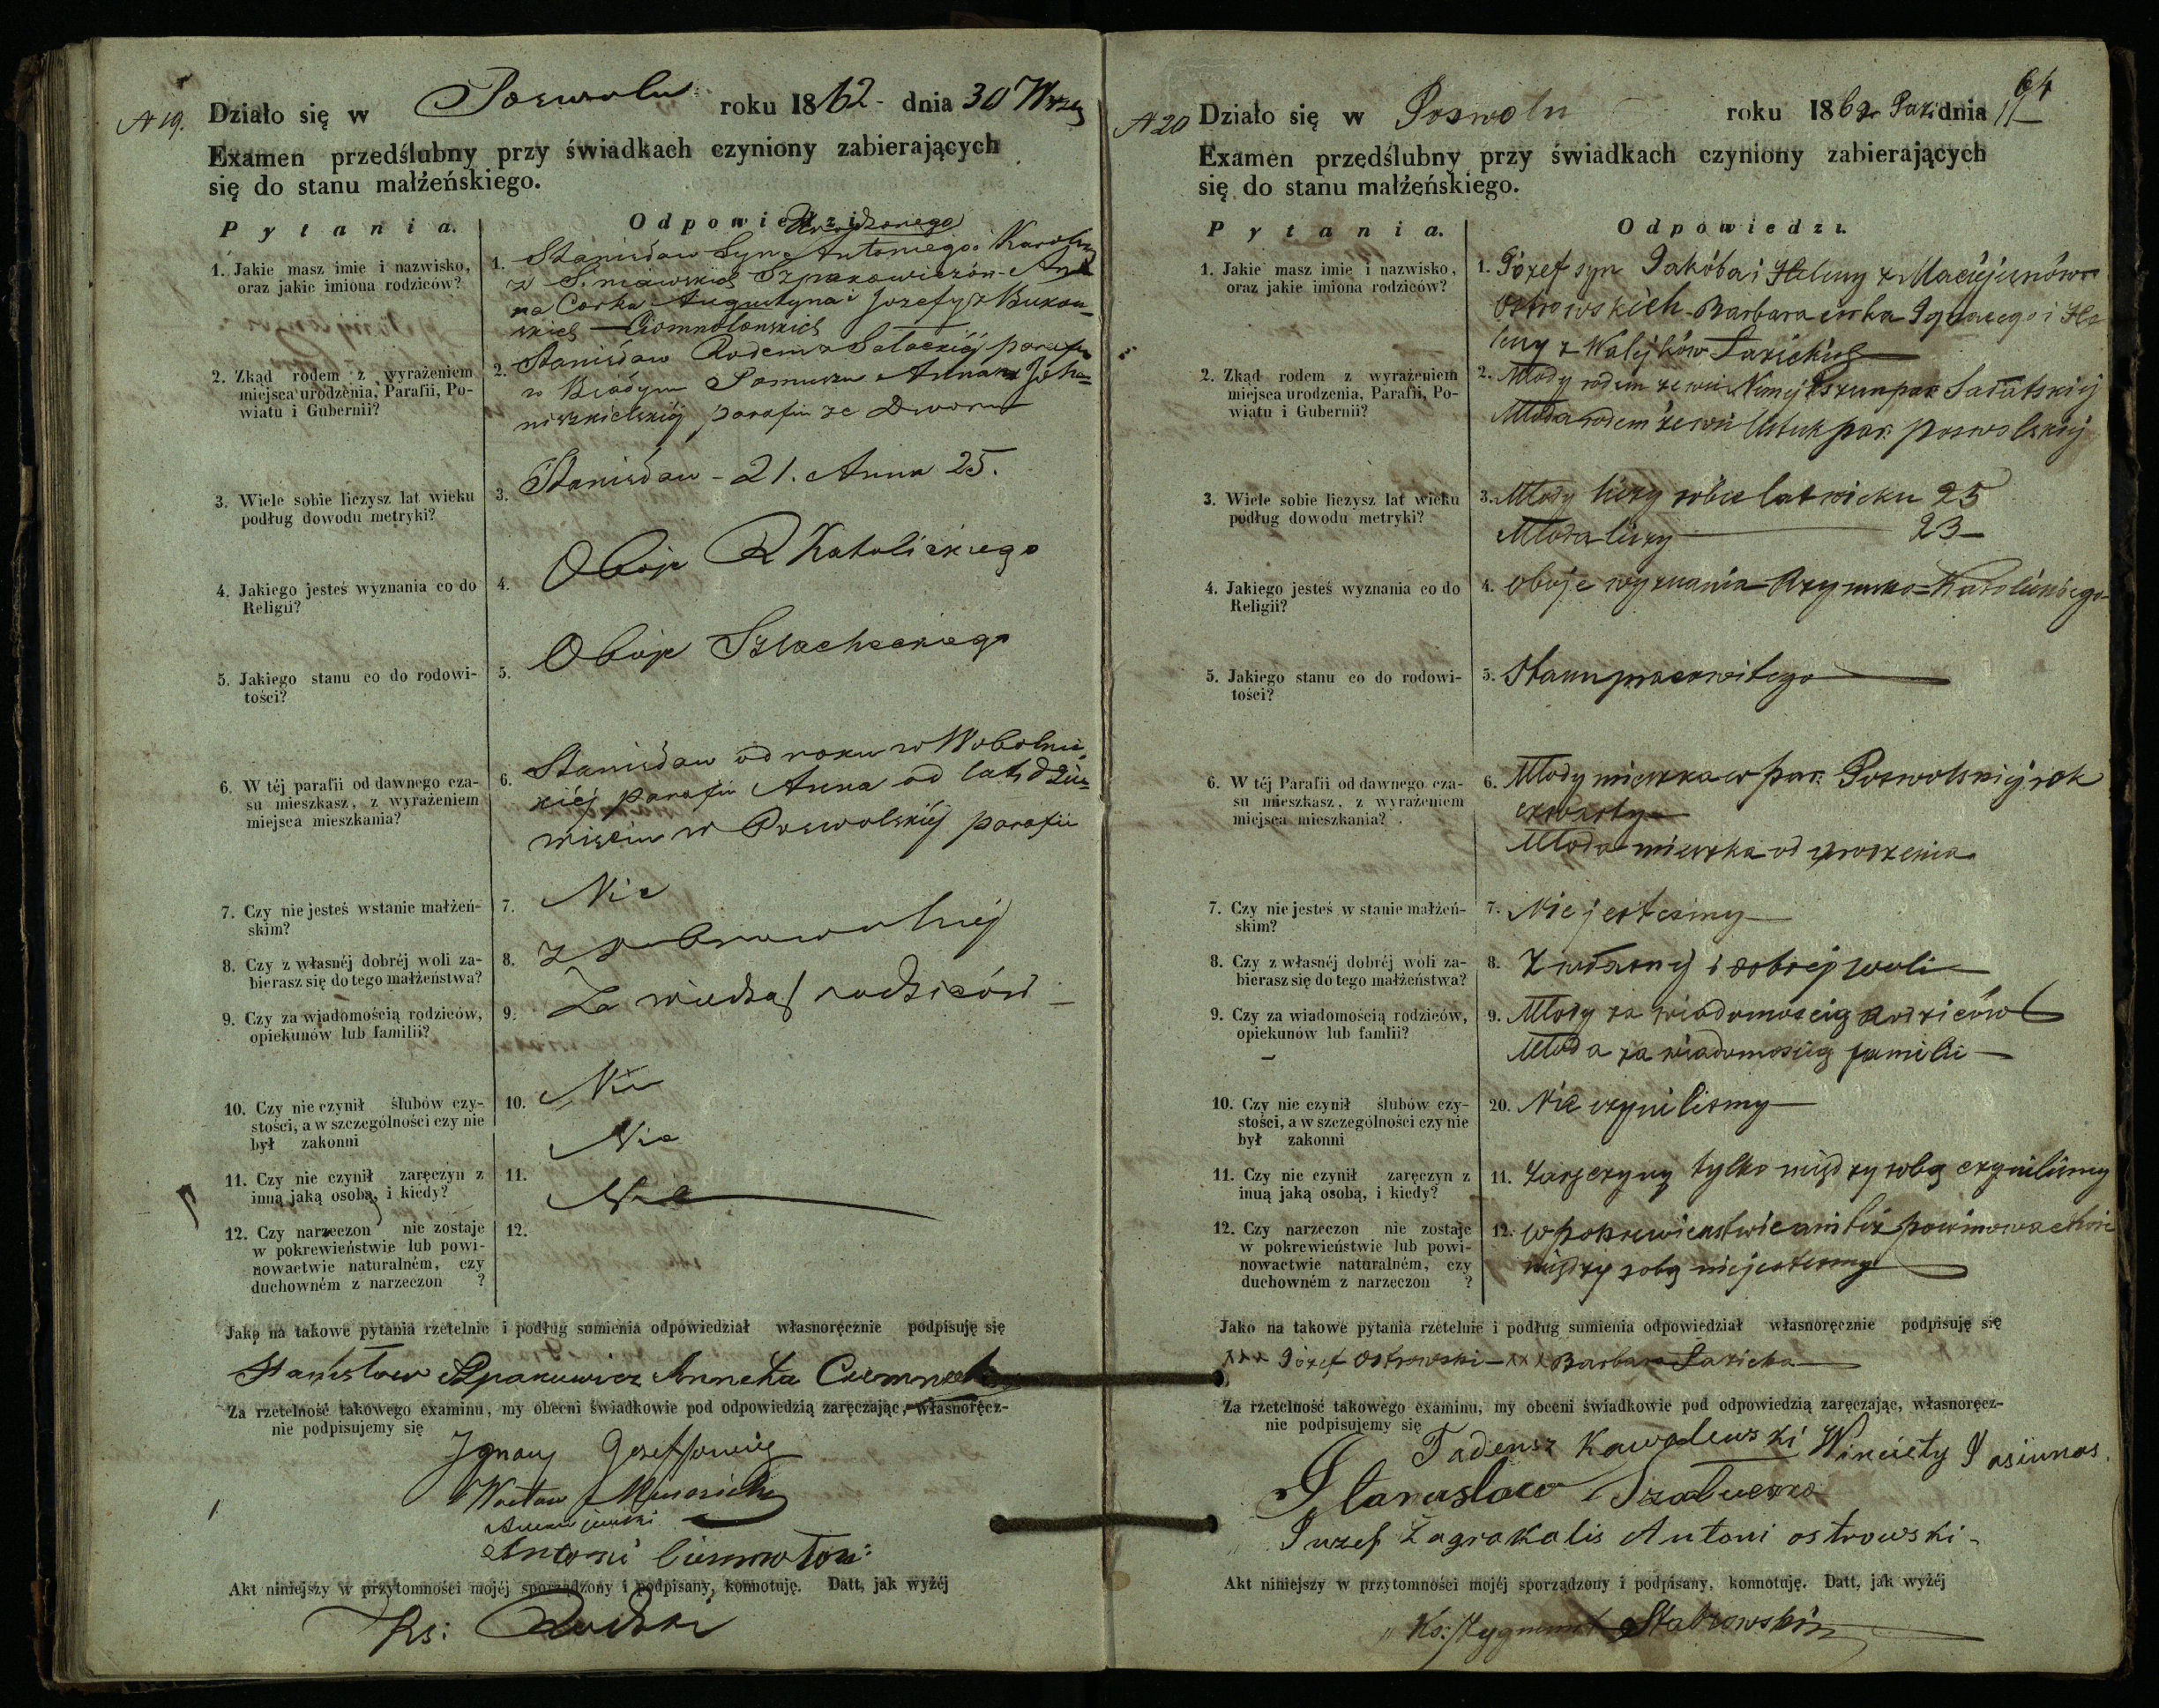 N 19. Działo się w Poswolu roku 1862 - dnia 30 Wrześ
Examen przedślubny przy świadkach czyniony zabierających
się do stanu małżeńskiego.
Pytania. Odpowiedzi.
1. Jakie masz imie i nazwisko,
oraz jakie imiona rodziców?
1. Stanisław Syn Antoniego i Karoliny
Szpakowiczów - An
na Corka Augustyna i Jozefy z Bukow-
skich
2. Zkąd rodem z wyrażeniem
miejsca urodzenia, Parafii, Po-
wiatu i Gubernii?
2. Stanisław Rodem z Sałackiéj parafii
Anna z Joha-
niszkielskiéj parafii ze Dworu
3. Wiele sobie liczysz lat wieku
podług dowodu metryki?
3. Stanisław - 21. Anna 25.
4. Jakiego jesteś wyznania co do
Religii?
4. Oboje R Katolickiego
5. Jakiego stanu co do rodowi-
tości?
5. Oboje Szlacheckiego
6. W téj parafii od dawnego cza-
su mieszkasz, z wyrażeniem
miejsca mieszkania?
6. Stanisław od roku w Wobolnic-
kiéj parafii Anna od lat dzie-
więciu w Poswolskiéj parafii
7. Czy nie jesteś wstanie małżeń-
skim?
7. Nie
8. Czy z własnéj dobréj woli za-
bierasz się do tego małżeństwa?
8. z dobrowolnéj
9. Czy za wiadomością rodziców,
opiekunów lub familii?
9. Za wiedzą rodziców -
10. Czy nie czynił ślubów czy-
stości, a w szczególności czy nie
był zakonni
10. Nie
11. Czy nie czynił zaręczyn z
inną jaką osobą, i kiedy?
11. Nie
12. Czy narzeczon nie zostaje
w pokrewieństwie lub powi-
nowactwie naturalném, czy
duchowném z narzeczon ?
12. Nie
Jako na takowe pytania rzetelnie i podług sumienia odpowiedział własnoręcznie podpisuję się
Stanisław Szpakowicz Anneta
Za rzetelność takowego examinu, my obecni świadkowie pod odpowiedzią zaręczając, własnoręcz-
nie podpisujemy się
Ignacy
Wacław
Antoni
Akt niniejszy w przytomności mojéj sporządzony i podpisany, konnotuję. Datt, jak wyżéj
Ks:
64
N 20 Działo się w Poswolu roku 1862 Paź dnia 11
Examen przedślubny przy świadkach czyniony zabierających
się do stanu małżeńskiego.
Pytania. Odpowiedzi.
1. Jakie masz imie i nazwisko,
oraz jakie imiona rodziców?
1. Józef syn Jakóba i Heleny z Maciejunów
Ostrowskich - Barbara córka Ignacego i He
leny z Walejków Łazickich
2. Zkąd rodem z wyrażeniem
miejsca urodzenia, Parafii, Po-
wiatu i Gubernii?
2. Młody rodem ze wsi par Sałatskiej
Młoda rodem ze wsi Ustuk par: poswolskiej
3. Wiele sobie liczysz lat wieku
podług dowodu metryki?
3. Młody liczy sobie lat wieku 25
Młoda liczy 23 -
4. Jakiego jesteś wyznania co do
Religii?
4. Oboje wyznania Rzymsko=Katolickiego
5. Jakiego stanu co do rodowi-
tości?
5. Stanu pracowitego
6. W téj Parafii od dawnego cza-
su mieszkasz, z wyrażeniem
miejsca mieszkania?
6. Młody mieszka w par: Poswolskiej rok
czwarty
Młoda mieszka od urodzenia
7. Czy nie jesteś w stanie małżeń-
skim?
7. Nie jestesmy
8. Czy z własnéj dobréj woli za-
bierasz się do tego małżeństwa?
8. Z własnej i dobrej woli
9. Czy za wiadomością rodziców,
opiekunów lub famlii?
9. Młody za wiadomoscią rodziców
Młoda za wiadomoscią familii
10. Czy nie czynił ślubów czy-
stości, a w szczególności czy nie
był zakonni
20. Nie czynilismy
11. Czy nie czynił zaręczyn z
inną jaką osobą, i kiedy?
11. Zaręczyny tylko między sobą czynilismy
12. Czy narzeczon nie zostaje
w pokrewieństwie lub powi-
nowactwie naturalném, czy
duchowném z narzeczon ?
12. w pokrewieństwie ani też powinowactwie
między sobą niejestesmy
Jako na takowe pytania rzetelnie i podług sumienia odpowiedział własnoręcznie podpisuję się
xxx Józef Ostrowski - xxx Barbara Łazicka
Za rzetelność takowego examinu, my obecni świadkowie pod odpowiedzią zaręczając, własnoręcz-
nie podpisujemy się
Tadeusz Kawalewski Wincięty
Stanisław
Juzef Zagrakalis Antoni ostrowski -
Akt niniejszy w przytomności mojéj sporządzony i podpisany, konnotuję. Datt, jak wyżéj
Ks: Zygmunt Stabrowski